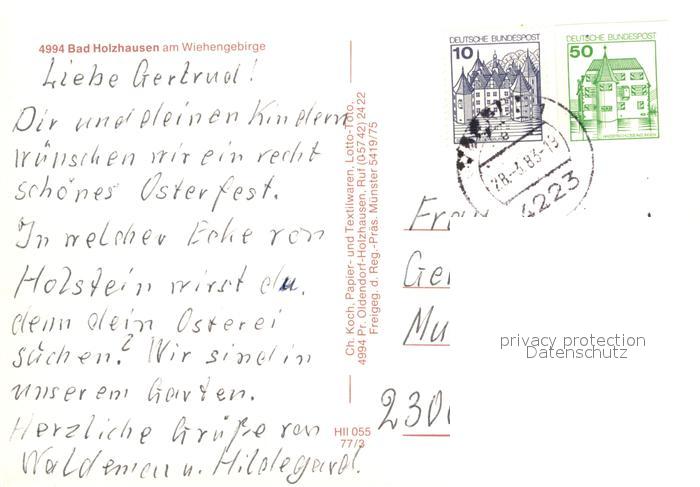 4994 Bad Holzhausen am Wiehengebirge
Liebe Gertrud!
Dir und deinen Kindern
wünschen wir ein recht
schönes Osterfest.
In welcher Ecke von
Holstein wirst du.
denn dein Osterei
suchen? Wir sind in
unserem Garten.
Herzliche Grüße von
Waldemar u. Hildegard.
Ch. Koch, Papier- und Textilwaren, Lotto-Toto,
4994 Pr. Oldendorf-Holzhausen, Ruf (05742) 2422
Freigeg. d. Reg.-Präs. Münster 5419/75
HII 055
77/3
DEUTSCHE BUNDESPOST
10
DEUTSCHE BUNDESPOST
50
28.-3.83-19
4223
Frau
Ger
Mu
230
privacy protection
Datenschutz